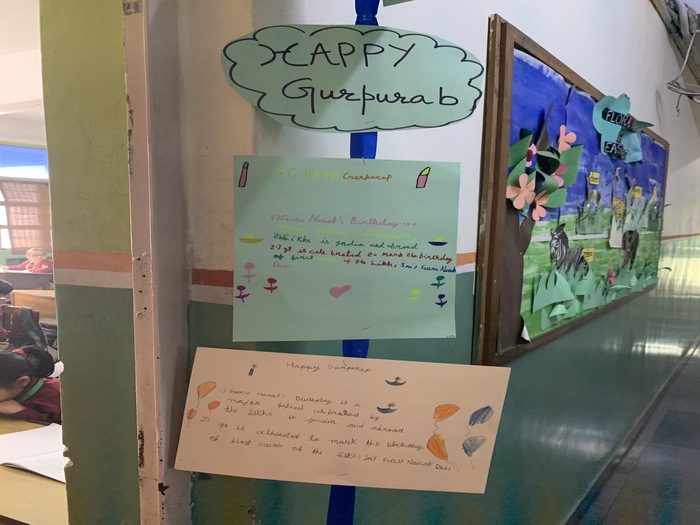 HAPPY
Gurpurab
Happy Gurpurap
1) Guru Nanak's Birthday is a
Sikhs is india and abroad
2) It is celebrated to mark the birthday
of first of the Sikhs, Sri Guru Nanak
Dev.
Happy Gurpurap
1) Guru Nanak's Birthday is a
major festival celebrated by
the Sikhs in india and abroad
2) It is celebrated to mark the birthday
of first Guru of the Sikhs Sri Guru Nanak Dev
FLORA
EAST